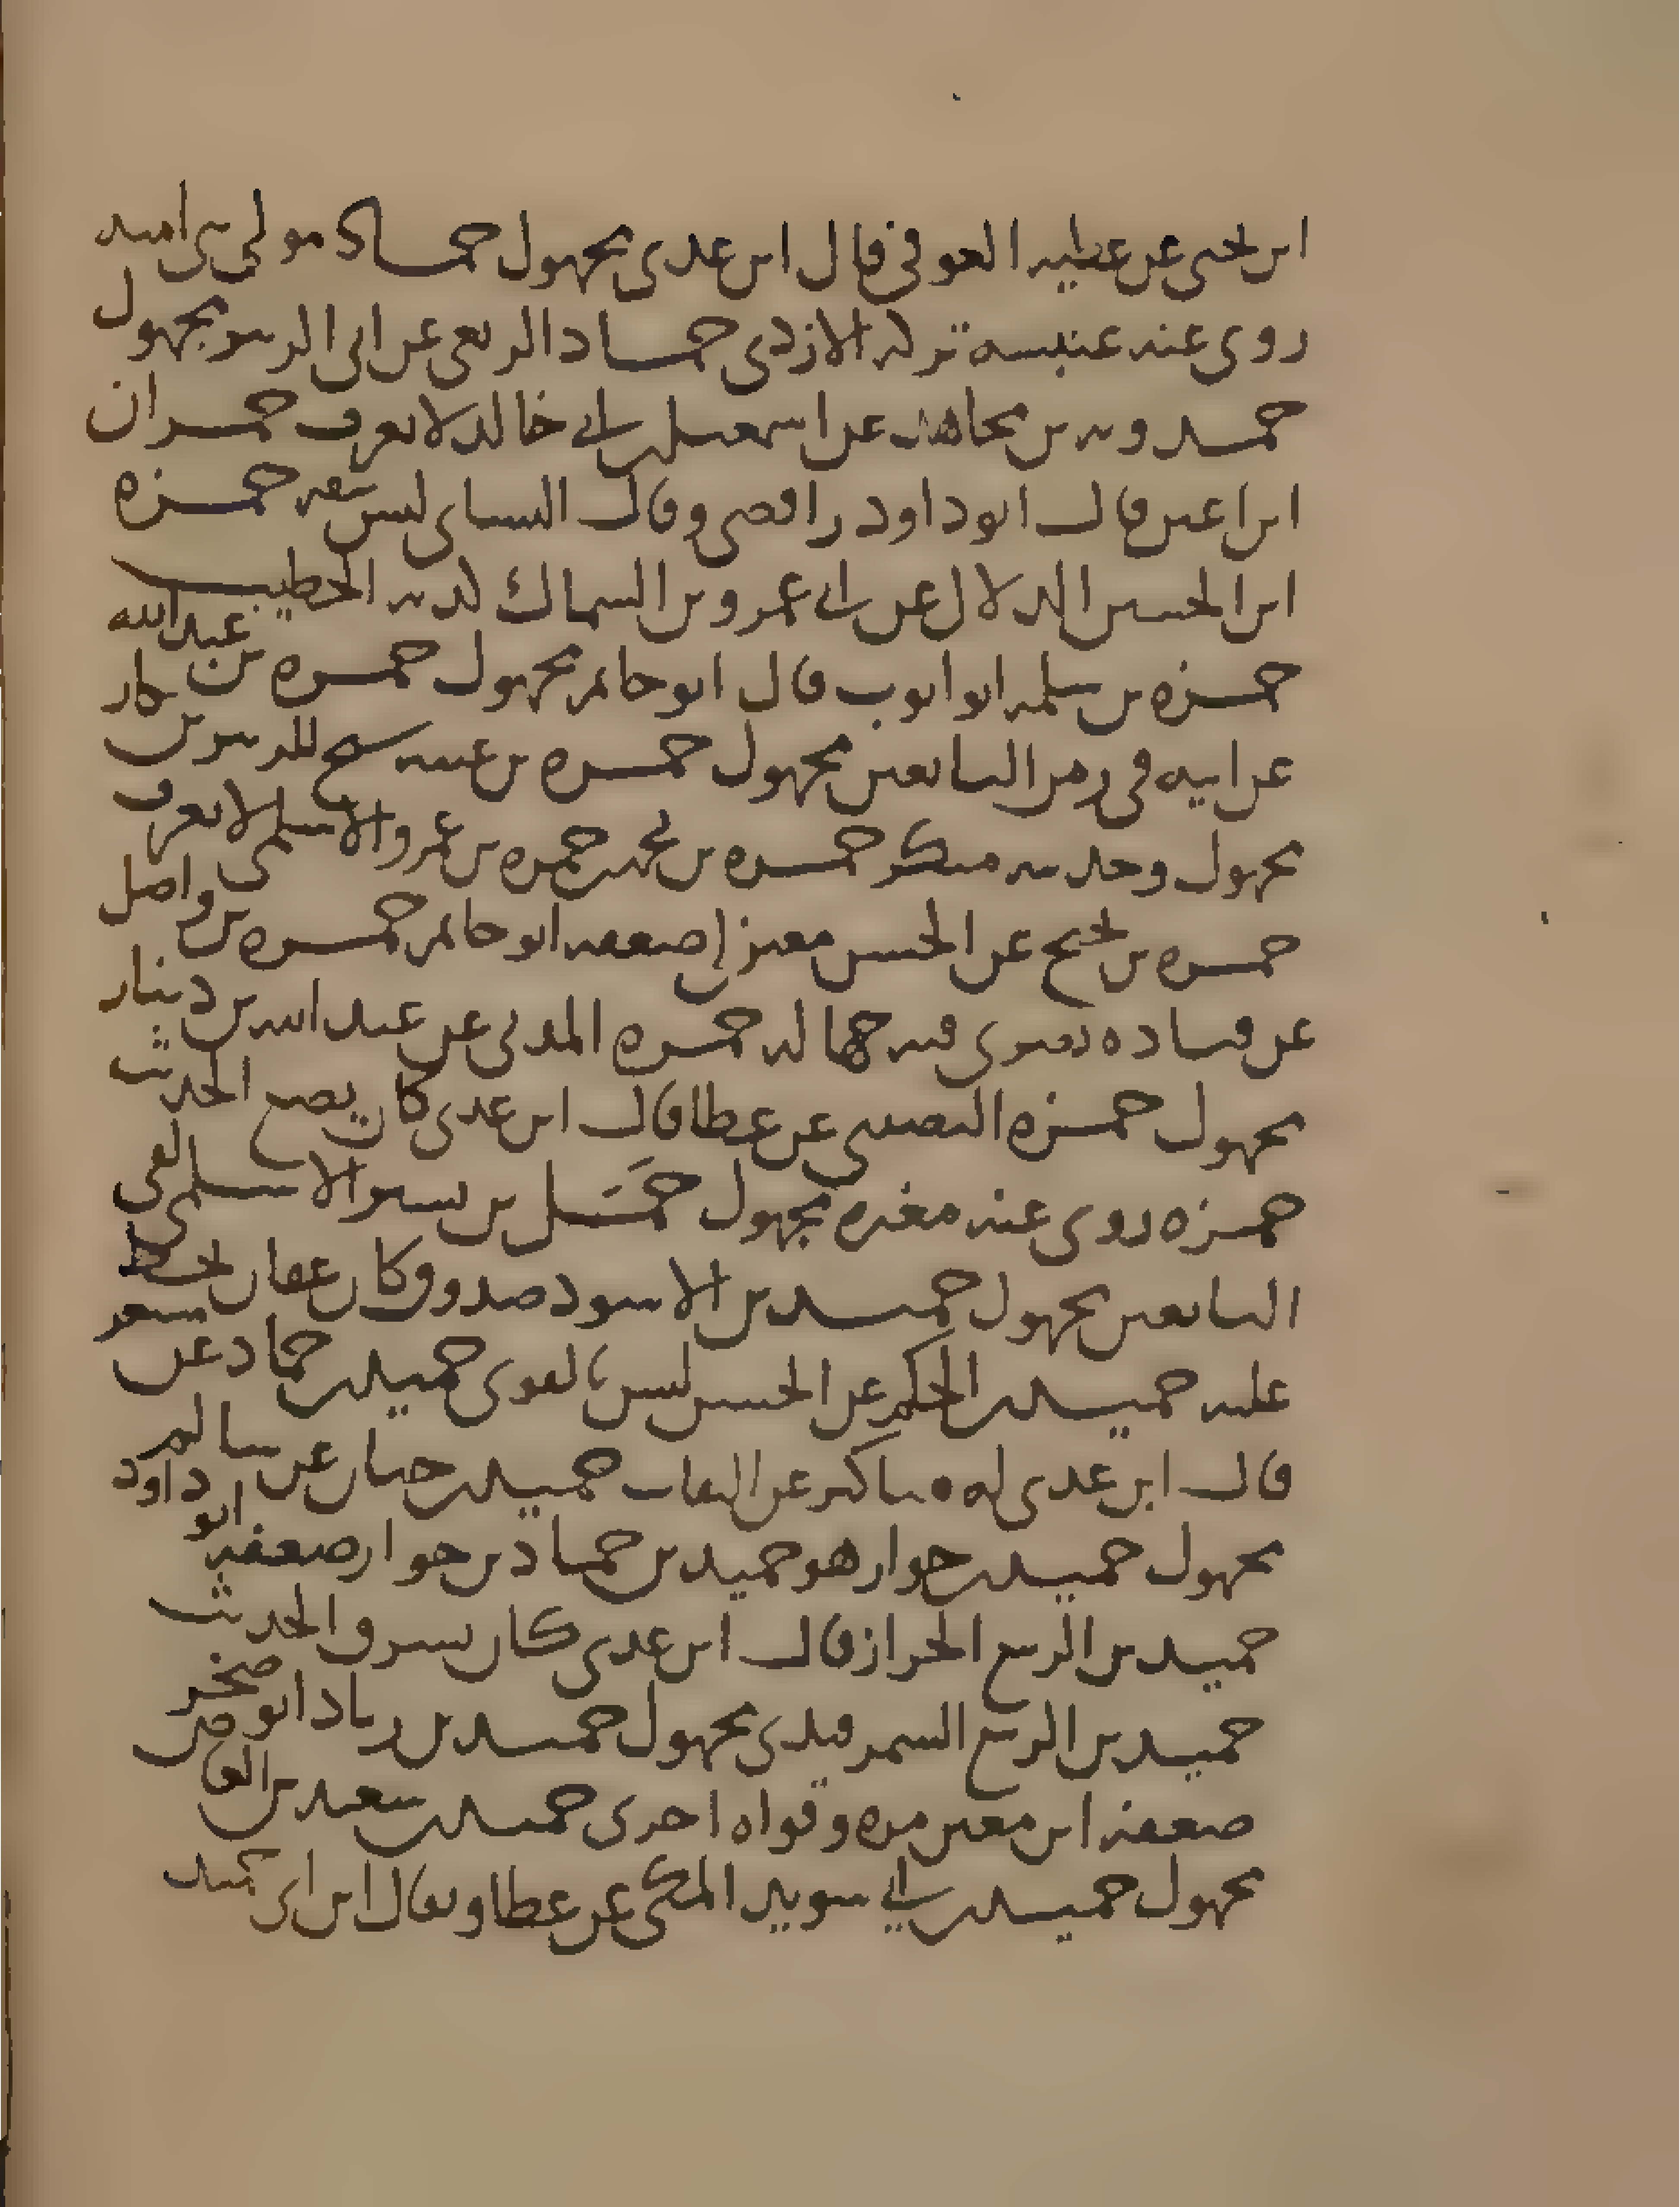 ابن يحيى عن عطيه العوفي قال ابن عدى مجهول حماد مولى بنى اميه
روى عنه عنبسة تركه الازدى حماد الربعى عن ابى الزبير مجهول
حمدويه بن مجاهد عن اسمعيل بن ابي خالد لا يعرف حمران
ابن اعين قال ابو داود رافضى وقال النسائ ليس بثقه حمزه
ابن الحسين الدلال عن ابي عمرو بن السماك كذبه الخطيب
حمزه بن سلمه ابو ايوب قال ابو حاتم مجهول حمزه بن عبد الله
عن ابيه فى زمن التابعين مجهول حمزه بن عتبه شيخ للزبير بن بكار
مجهول وحديثه منكر حمزه بن محمد بن حمزه بن عمرو الاسلمى لا يعرف
حمزه بن نجيح عن الحسن معتزلى ضعفه ابو حاتم حمزه بن واصل
عن قتاده فيه جهاله حمزه المدنى عن عبد الله بن دينار
مجهول حمزه النصيبى عن عطا قال ابن عدى كان يضع الحديث
حمزه روى عنه مغيره مجهول حَمَل بن بشير الاسلمى لقى
التابعين مجهول حميد بن الاسود صدوق كان عفان يحط
عليه حميد بن الحكم عن الحسن ليس بالقوى حميد بن حماد عن مسعر
قال ابن عدى له مناكير عن الثقات حميد بن حيان عن سالم
مجهول حميد بن خوار هو حميد بن حماد بن خوار ضعفه ابو داود
حميد بن الربيع الخراز قال ابن عدى كان يسرق الحديث
حميد بن الربيع السمرقندى مجهول حميد بن زياد ابو صخر
ضعفه ابن معين مره وقواه اخرى حميد بن سعيد بن العاص
مجهول حميد بن ابي سويد المكى عن عطا ويقال ابن ابى حميد